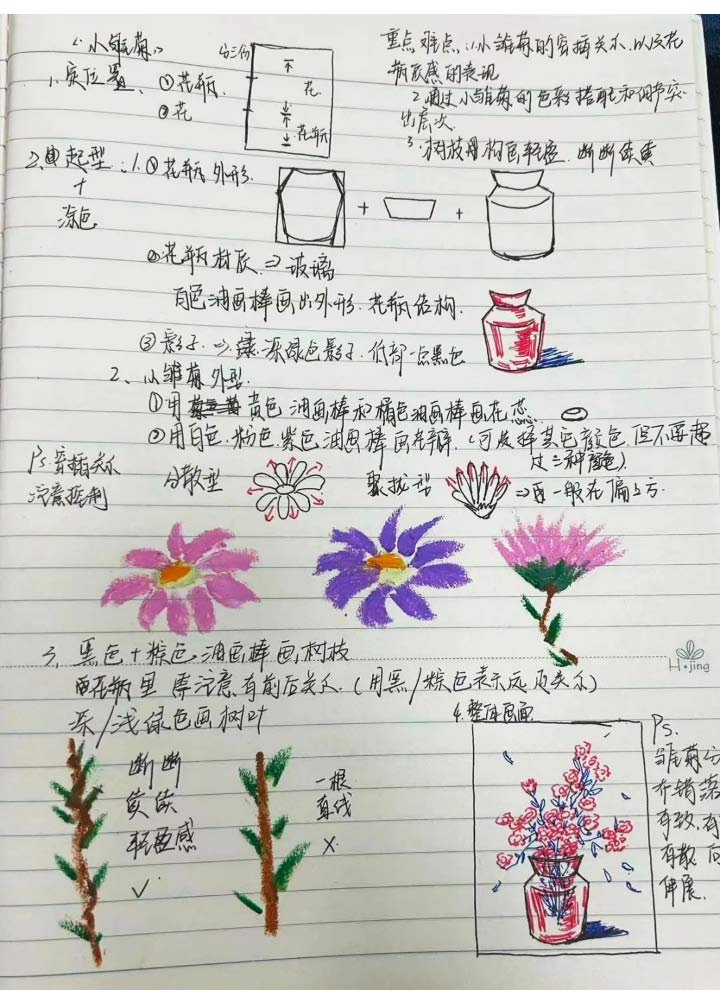 《小雏菊》
1、定位置、①花瓶.
②花
分三份
花
花瓶
重点难点:1.小雏菊的穿插关系,以及花
瓶质感的表现
2.通过小雏菊的色彩搭配和细节突
出层次.
3.树枝的构画轻盈.断断续续
2、起型:1.①花瓶外形.
+
涂色
②花瓶材质.⇒玻璃
白色油画棒画出外形.花瓶结构.
③影子.⇒绿.深绿色影子.低部一点黑色
2、小雏菊外型.
①用黄色油画棒和橘色油画棒画花蕊.
②用白色.粉色.紫色油画棒画花瓣.(可选择其它颜色.但不要超
过三种颜色)
Ps.穿插关系
注意控制
分散型
聚拢型
⇒一般在偏上方.
3、黑色+棕色.油画棒画树枝
花瓶里要注意有前后关系.(用黑/棕色表示远近关系)
深/浅绿色画树叶
H·jing
断断
续续
轻盈感
✓
一根
直线
×
4.整体画面
Ps.
雏菊分
布错落
有致.有
有散.向
伸展.